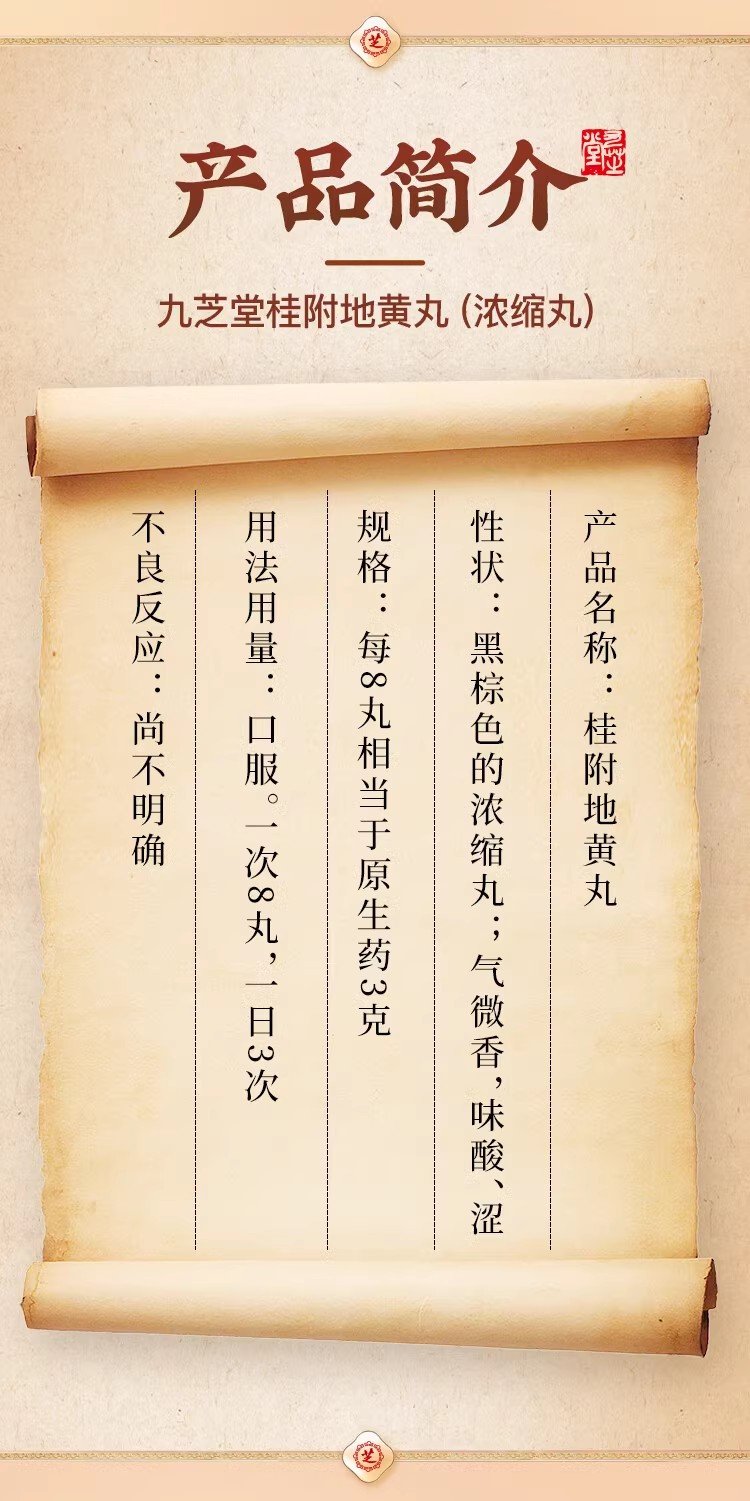 芝
产品简介
九芝堂
九芝堂桂附地黄丸（浓缩丸）
产品名称：桂附地黄丸
性状：黑棕色的浓缩丸；气微香，味酸、涩
规格：每8丸相当于原生药3克
用法用量：口服。一次8丸，一日3次
不良反应：尚不明确
芝